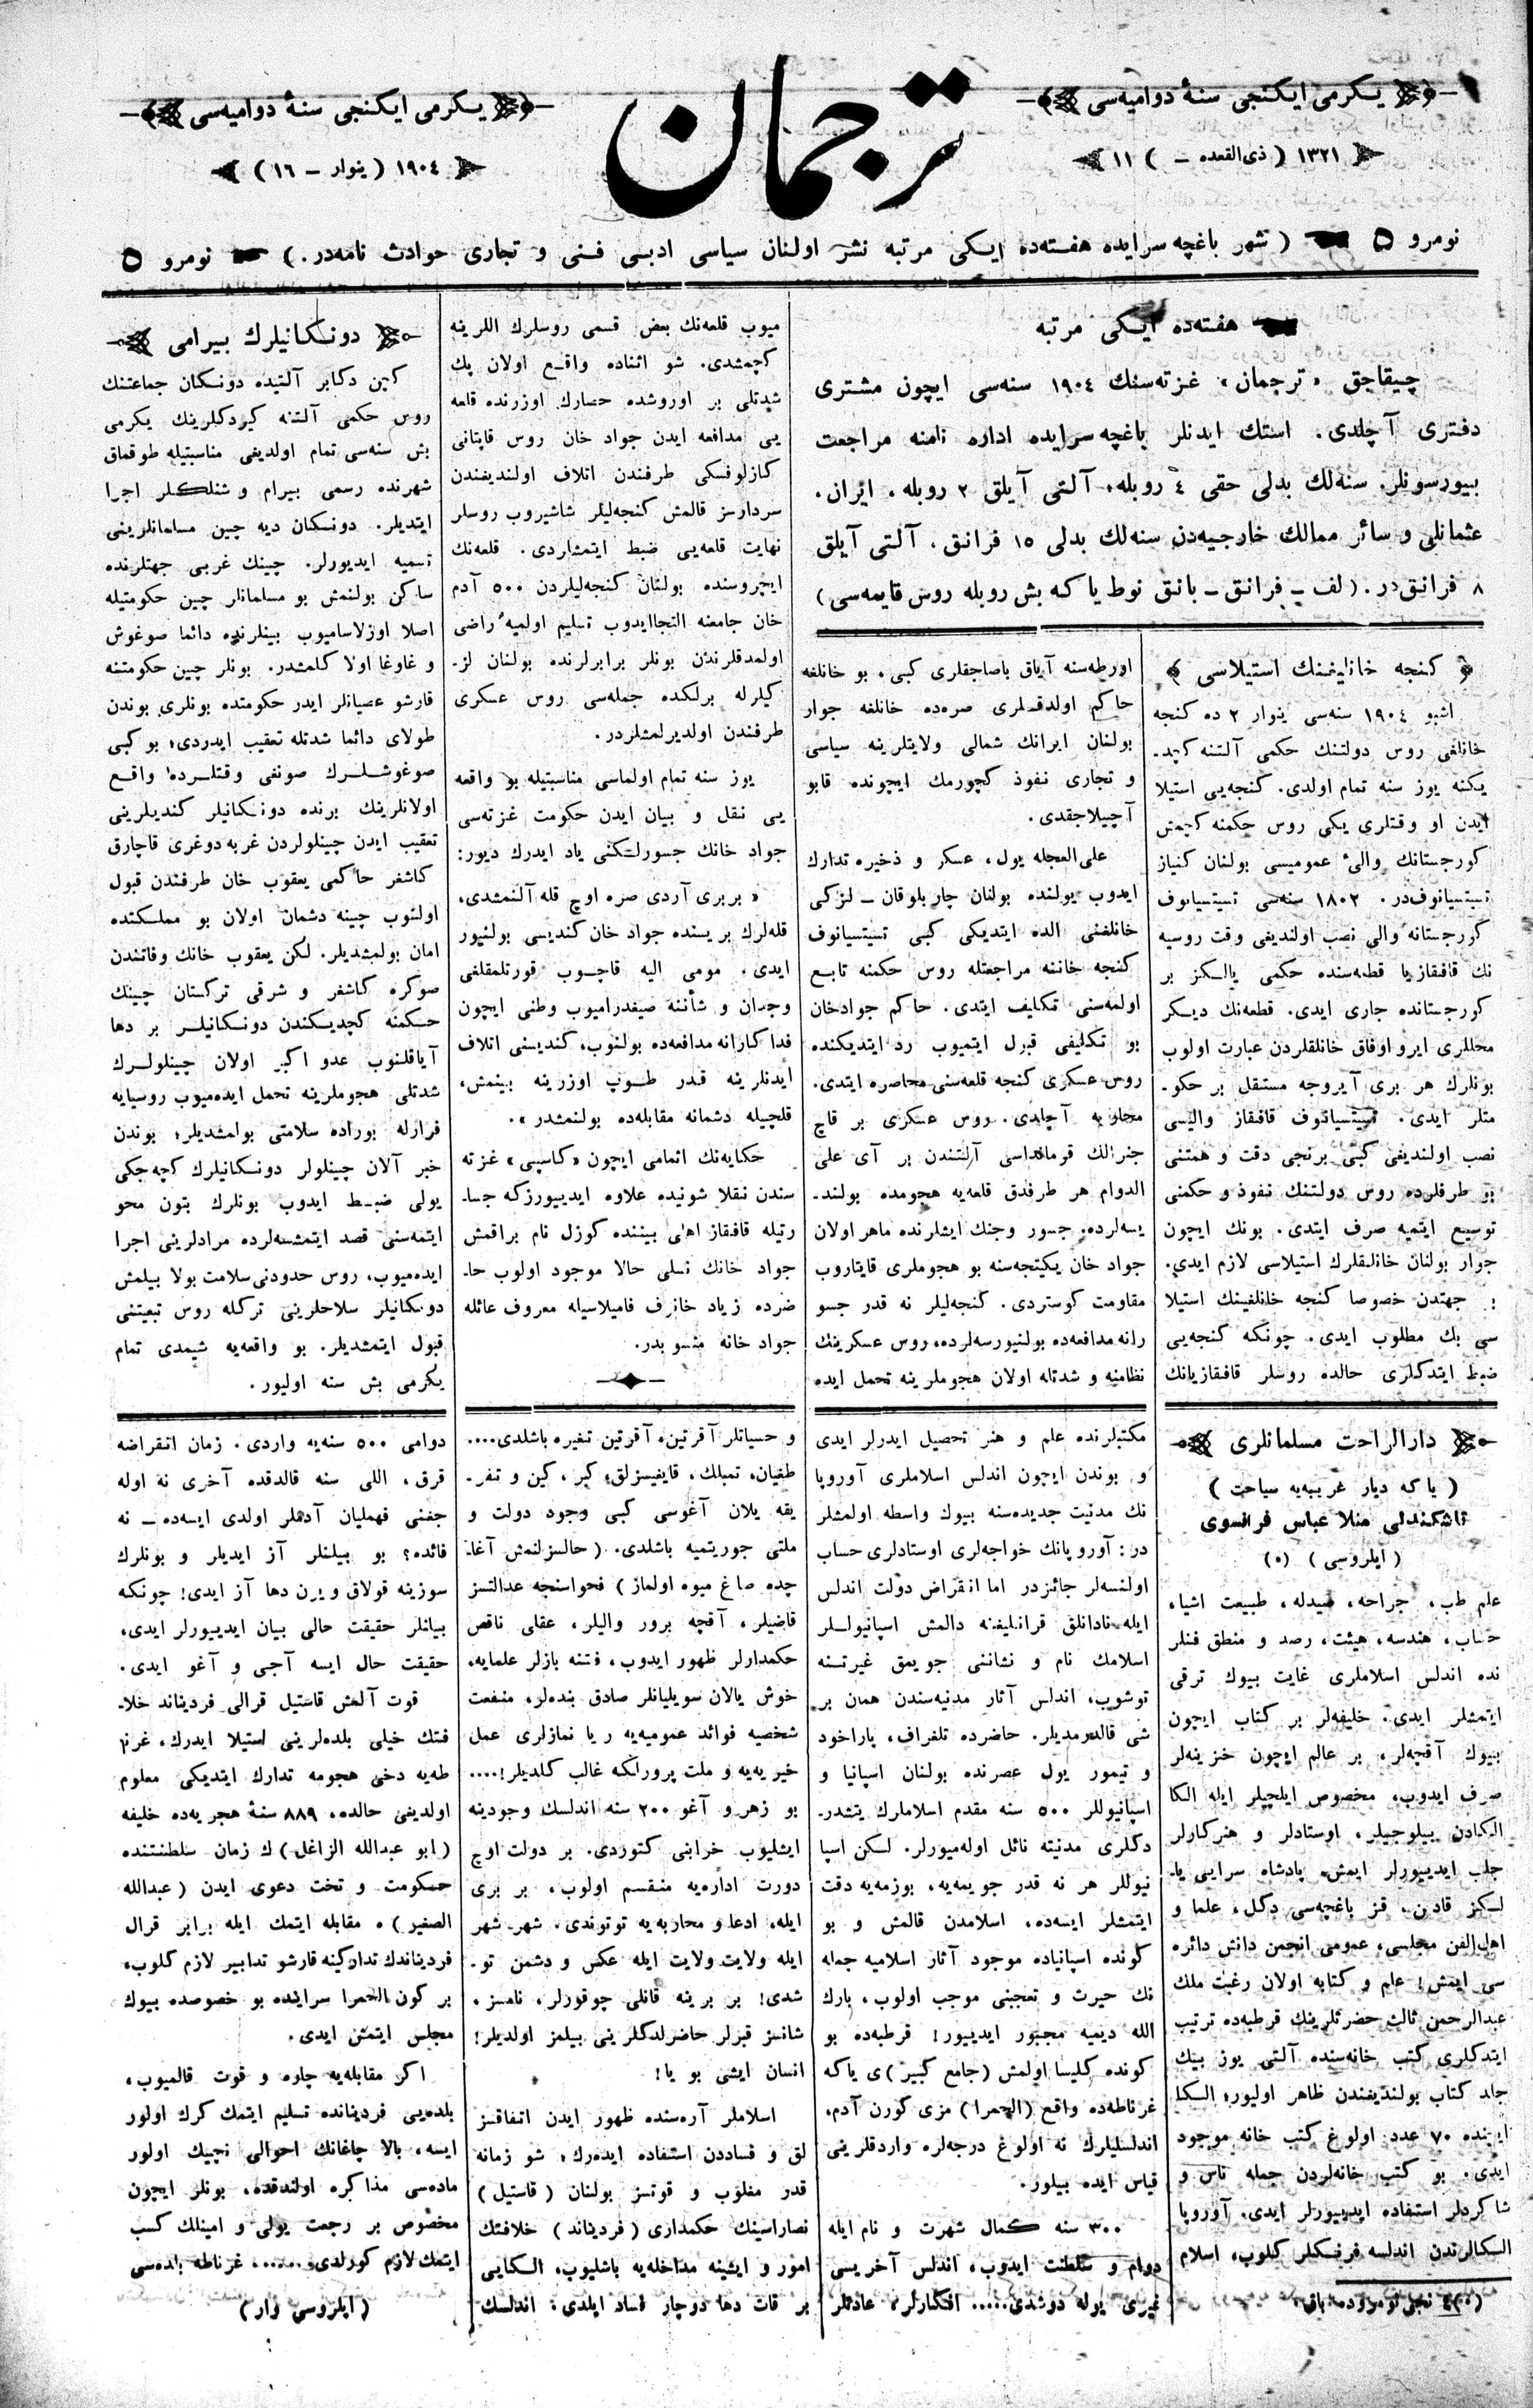 يكرمى ايكنجى سنۀ دواميه‌سى
ترجمان
يكرمى ايكنجى سنۀ دواميه‌سى
١٣٢١ ( ذى‌القعده – ) ١١
١٩٠٤ ( ينوار – ١٦ )
نومرو ٥ ( شهر باغچه سرايده هفته‌ده ايكى مرتبه نشر اولنان سياسى ادبى فنى و تجارى حوادث نامه‌در. ) نومرو ٥
هفته‌ده ايكى مرتبه
چيقاجق «ترجمان» غزته‌سنك ١٩٠٤ سنه‌سى ايچون مشترى
دفترى آچلدى. استك ايدنلر باغچه سرايده اداره نامنه مراجعت
بيورسونلر. سنه‌لك بدلى حقى ٤ روبله، آلتى آيلق ٢ روبله. ايران.
عثمانلى و سائر ممالك خارجيه‌دن سنه‌لك بدلى ١٥ فرانق. آلتى آيلق
٨ فرانق‌در. (لف – فرانق – بانق نوط ياكه بش روبله روس قايمه‌سى)
كنجه خانليغنك استيلاسى
اشبو ١٩٠٤ سنه‌سى ينوار ٢ ده كنجه
خانلغى روس دولتنك حكمى آلتنه كچد-
يكنه يوز سنه تمام اولدى. كنجه‌يى استيلا
ايدن او وقتلرى يكى روس حكمنه كچمش
كورجستانك والئ عموميسى بولنان كنياز
تسيتسيانوف‌در. ١٨٠٢ سنه‌سى تسيتسيانوف
كورجستانه والى نصب اولنديغى وقت روسيه
نك قافقازيا قطعه‌سنده حكمى يالكز بر
كورجستانده جارى ايدى. قطعه‌نك ديكر
محللرى ايرو اوفاق خانلقلردن عبارت اولوب
بونلرك هر برى آيروجه مستقل بر حكو-
متلر ايدى. تسيتسيانوف قافقاز واليسى
نصب اولنديغى كبى برنجى دقت و همتنى
بو طرفلرده روس دولتنك نفوذ و حكمنى
توسيع ايتميه صرف ايتدى. بونك ايچون
جوار بولنان خانلقلرك استيلاسى لازم ايدى.
جهتدن خصوصا كنجه خانلغينك استيلا
سى بك مطلوب ايدى. چونكه كنجه‌يى
ضبط ايتدكلرى حالده روسلر قافقازيانك
اورطه‌سنه آياق باصاجقلرى كبى، بو خانلغه
حاكم اولدقلرى صره‌ده خانلغه جوار
بولنان ايرانك شمالى ولايتلرينه سياسى
و تجارى نفوذ كچورمك ايچونده قاپو
آچيلاجقدى.
على‌العجله يول، عسكر و ذخيره تدارك
ايدوب يولنده بولنان چار بلوقان – لزكى
خانلغنى الده ايتديكى كبى تسيتسيانوف
كنجه خاننه مراجعتله روس حكمنه تابع
اولمه‌سنى تكليف ايتدى. حاكم جوادخان
بو تكليفى قبول ايتميوب رد ايتديكنده
روس عسكرى كنجه قلعه‌سنى محاصره ايتدى.
محاربه آچلدى. روس عسكرى بر قاچ
جنرالك قومانداسى آلتندن بر آى على
الدوام هر طرفدق قلعه‌يه هجومده بولند-
يسه‌لرده، جسور و جنك ايشلرنده ماهر اولان
جواد خان يكيتجه‌سنه بو هجوملرى قايتاروب
مقاومت كوستردى. كنجه‌ليلر نه قدر جسو
رانه مدافعه‌ده بولنيورسه‌لرده، روس عسكرينك
نظامنه و شدتله اولان هجوملرينه تحمل ايده
ميوب قلعه‌نك بعض قسمى روسلرك اللرينه
كچمشدى. شو اثناده واقع اولان پك
شدتلى بر اوروشده حصارك اوزرنده قلعه
يى مدافعه ايدن جواد خان روس قاپتانى
كازلوفسكى طرفندن اتلاف اولنديغندن
سردارسز قالمش كنجه‌ليلر شاشيروب روسلر
نهايت قلعه‌يى ضبط ايتمشاردى. قلعه‌نك
ايچروسنده بولنان كنجه‌ليلردن ٥٠٠ آدم
خان جامعنه التجاايدوب تسليم اولميه راضى
اولمدقلرندن بونلر برابرلرنده بولنان لز-
كيلرله برلكده جمله‌سى روس عسكرى
طرفندن اولديرلمشلردر.
يوز سنه تمام اولماسى مناسبتيله بو واقعه
يى نقل و بيان ايدن حكومت غزته‌سى
جواد خانك جسورلكنى ياد ايدرك ديور:
« بربرى آردى صره اوچ قله آلنمشدى،
قله‌لرك بريسنده جواد خان كنديسى بولنيور
ايدى. مومى اليه قاچوب قورتلمقلغى
وجدان و شأننه صيغدراميوب وطنى ايچون
فدا كارانه مدافعه‌ده بولنوب، كنديسنى اتلاف
ايدنلرينه قدر طوپ اوزرينه بينمش،
قلچيله دشمانه مقابله‌ده بولنمشدر ».
حكايه‌نك اتمامى ايچون «كاسپى» غزته
سندن نقلا شونيده علاوه ايدييورزكه جسا-
رتيله قافقاز اهلى بيننده كوزل نام براقمش
جواد خانك نسلى حالا موجود اولوب حا-
ضرده زياد خانوف فاميلاسيله معروف عائله
جواد خانه منسوبدر.
دونكانيلرك بيرامى
كچن دكابر آلتيده دونكان جماعتنك
روس حكمى آلتنه كيردكلرينك يكرمى
بش سنه‌سى تمام اولديغى مناسبتيله طوقماق
شهرنده رسمى بيرام و شنلكلر اجرا
ايتديلر. دونكان ديه چين مسلمانلرينى
تسميه ايديورلر. چينك غربى جهتلرنده
ساكن بولنمش بو مسلمانلر چين حكومتيله
اصلا اوزلاساميوب بينلرنده دائما صوغوش
و غاوغا اولا كلمشدر. بونلر چين حكومتنه
قارشو عصيانلر ايدر حكومتده بونلرى بوندن
طولاى دائما شدتله تعقيب ايدردى؛ بو كبى
صوغوشلرك صوڭغى وقتلرده واقع
اولانلرينك برنده دونكانيلر كنديلرينى
تعقيب ايدن چينلولردن غربه دوغرى قاچارق
كاشغر حاكمى يعقوب خان طرفندن قبول
اولنوب چينه دشمان اولان بو مملكتده
امان بولمشديلر. لكن يعقوب خانك وفاتندن
صوكره كاشغر و شرقى تركستان چينك
حكمنه كچديكندن دونكانيلر بر دها
آياقلنوب عدو اكبر اولان چينلولرك
شدتلى هجوملرينه تحمل ايده‌ميوب روسيايه
فرارله بوراده سلامتى بولمشديلر؛ بوندن
خبر آلان چينلولر دونكانيلرك كچه‌جكى
يولى ضبط ايدوب بونلرك بتون محو
ايتمه‌سنى قصد ايتمشسه‌لرده مرادلرينى اجرا
ايده‌ميوب، روس حدودنى سلامت بولا بيلمش
دونكانيلر سلاحلرينى تركله روس تبعيتنى
قبول ايتمشديلر. بو واقعه‌يه شيمدى تمام
يكرمى بش سنه اوليور.
دارالراحت مسلمانلرى
( ياكه ديار غريبه‌يه سياحت )
تاشكندلى منلا عباس فرانسوى
( ايلروسى ) (٥)
علم طب، جراحه، صيدله، طبيعت اشيا،
حساب، هندسه، هيئت، رصد و منطق فنلر
نده اندلس اسلاملرى غايت بيوك ترقى
ايتمشلر ايدى. خليفه‌لر بر كتاب ايچون
بيوك آقچه‌لر، بر عالم ايچون خزينه‌لر
صرف ايدوب، مخصوص ايلچيلر ايله الكا
الكادن بيلوجيلر، اوستادلر و هنركارلر
جلب ايدييورلر ايمش. پادشاه سرايى يا-
لكز قادين، قز باغچه‌سى دكل، علما و
اهل‌الفن مجلسى، عمومى انجمن دانش دائره
سى ايمش! علم و كتابه اولان رغبت ملك
عبدالرحمن ثالث حضرتلرينك قرطبه‌ده ترتيب
ايتدكلرى كتب خانه‌سنده آلتى يوز بيك
جلد كتاب بولنديغندن ظاهر اوليور؛ الكا
ايچنده ٧٠ عدد اولوغ كتب خانه موجود
ايدى. بو كتب خانه‌لردن جمله ناس و
شاكردلر استفاده ايدييورلر ايدى. آوروپا
الكالرندن اندلسه فرنكلر كلوب، اسلام
مكتبلرنده علم و هنر تحصيل ايدرلر ايدى
و بوندن ايچون اندلس اسلاملرى آوروپا
نك مدنيت جديده‌سنه بيوك واسطه اولمشلر
در: آوروپانك خواجه‌لرى اوستادلرى حساب
اولنسه‌لر جائزدر اما انقراض دولت اندلس
ايله نادانلق قراڭليغنه دالمش اسپانيوللر
اسلامك نام و نشاننى جويمق غيرتنه
توشوب، اندلس آثار مدنيه‌سندن همان بر
شى قالدرمديلر. حاضرده تلغراف، پاراخود
و تيمور يول عصرنده بولنان اسپانيا و
اسپانيوللر ٥٠٠ سنه مقدم اسلاملرك يتشدر-
دكلرى مدنيته نائل اوله‌ميورلر. لكن اسپا
نيوللر هر نه قدر جويمه‌يه، بوزمه‌يه دقت
ايتمشلر ايسه‌ده، اسلامدن قالمش و بو
كونده اسپانياده موجود آثار اسلاميه جمله
نك حيرت و تعجبنى موجب اولوب، بارك
الله ديميه مجبور ايدييور! قرطبه‌ده بو
كونده كليسا اولمش (جامع كبير) ى ياكه
غرناطه‌ده واقع (الحمرا) مزى كورن آدم،
اندلسليلرك نه اولوغ درجه‌لره واردقلرينى
قياس ايده بيلور.
٣٠٠ سنه كمال شهرت و نام ايله
دوام و سلطنت ايدوب، اندلس آخريسى
غيرى يوله دوشدى..... افكارلر، عادتلر
و حسياتلر آقرتين، آقرتين تغيره باشلدى....
طغيان، تمبلك، قايغيسزلق، كبر، كين و تفر-
يقه يلان آغوسى كبى وجود دولت و
ملتى جوريتميه باشلدى. (حالسزلنمش آغا-
چده صاغ ميوه اولماز) فحواسنجه عدالتسز
قاضيلر، آقچه پرور واليلر، عقلى ناقص
حكمدارلر ظهور ايدوب، فتنه بازلر علمايه،
خوش يالان سويليانلر صادق بنده‌لر، منفعت
شخصيه فوائد عموميه‌يه ريا نمازلرى عمل
خيريه‌يه و ملت پرورانكه غالب كلديلر!....
بو زهر و آغو ٢٠٠ سنه اندلسك وجودينه
ايشليوب خرابنى كتوردى. بر دولت اوچ
دورت اداره‌يه منقسم اولوب، بر برى
ايله، ادعا و محاربه‌يه توتوندى. شهر شهر
ايله ولايت ولايت ايله عكس و دشمن تو-
شدى! بر برينه قانلى چوقورلر، نامسز،
شانسز قبرلر حاضرلدكلرينى بيلمز اولديلر!
انسان ايشى بو يا!
اسلاملر آره‌سنده ظهور ايدن اتفاقسز
لق و فساددن استفاده ايده‌رك؛ شو زمانه
قدر مغلوب و قوتسز بولنان (قاستيل)
نصاراسينك حكمدارى (فرديناند) خلافتك
امور و ايشينه مداخله‌يه باشليوب، الكايى
بر قات دها دوچار فساد ايلدى. اندلسك
دوامى ٥٠٠ سنه‌يه واردى. زمان انقراضه
قرق، اللى سنه قالدقده آخرى نه اوله
جغنى فهمليان آدملر اولدى ايسه‌ده – نه
فائده؟ بو بيلنلر آز ايديلر و بونلرك
سوزينه قولاق ويرن دها آز ايدى! چونكه
بيانلر حقيقت حالى بيان ايدييورلر ايدى،
حقيقت حال ايسه آجى و آغو ايدى.
قوت آلمش قاستيل قرالى فرديناند خلا-
فتك خيلى بلده‌لرينى استيلا ايدرك، غرنا
طه‌يه دخى هجومه تدارك ايتديكى معلوم
اولديغى حالده، ٨٨٩ سنۀ هجريه‌ده خليفه
(ابو عبدالله الزاغل) ك زمان سلطنتنده
حكومت و تخت دعوى ايدن (عبدالله
الصغير)، مقابله ايتمك ايله برابر قرال
فرديناندك تداركينه قارشو تدابير لازم كلوب،
بر كون الحمرا سراينده بو خصوصده بيوك
مجلس ايتمش ايدى.
اكر مقابله‌يه چاره و قوت قالميوب،
بلده‌يى فردينانده تسليم ايتمك كرك اولور
ايسه، بالا چاغانك احوالى نچيك اولور
ماده‌سى مذاكره اولندقده، بونلر ايچون
مخصوص بر رجعت يولى و امينلك كسب
ايتمك لازم كورلدى....... غرناطه بلده‌سى
( ايلروسى وار )